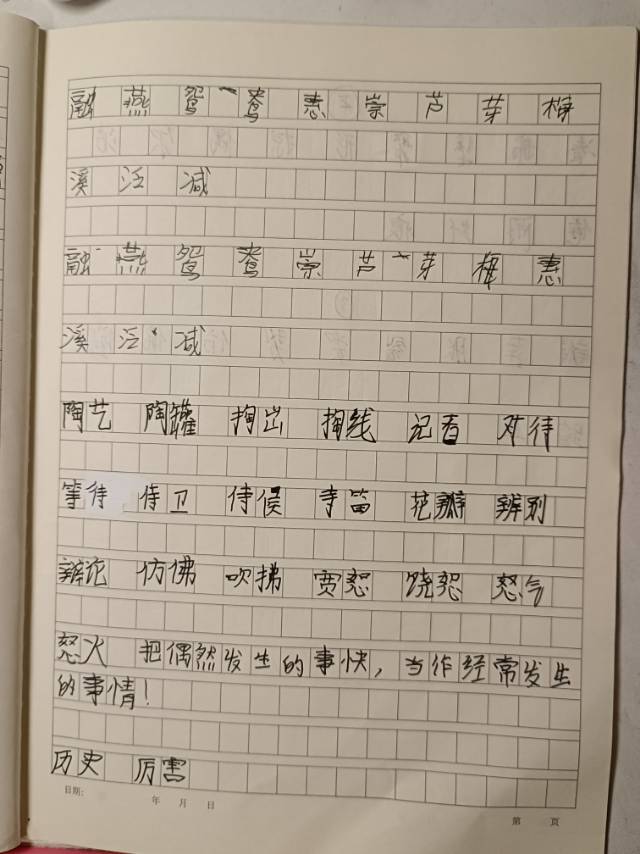 融 燕 鸳 鸯 惠 崇 芦 芽 梅
溪 泛 减
融 燕 鸳 鸯 崇 芦 芽 梅 惠
溪 泛 减
陶艺 陶罐 掏出 掏线 记着 对待
等待 侍卫 侍候 寺笛 花瓣 辨别
辨论 仿佛 吹拂 宽恕 饶恕 怒气
怒火 把偶然发生的事快，当作经常发生
的事情！
历史 厉害
日期： 年 月 日
第 页